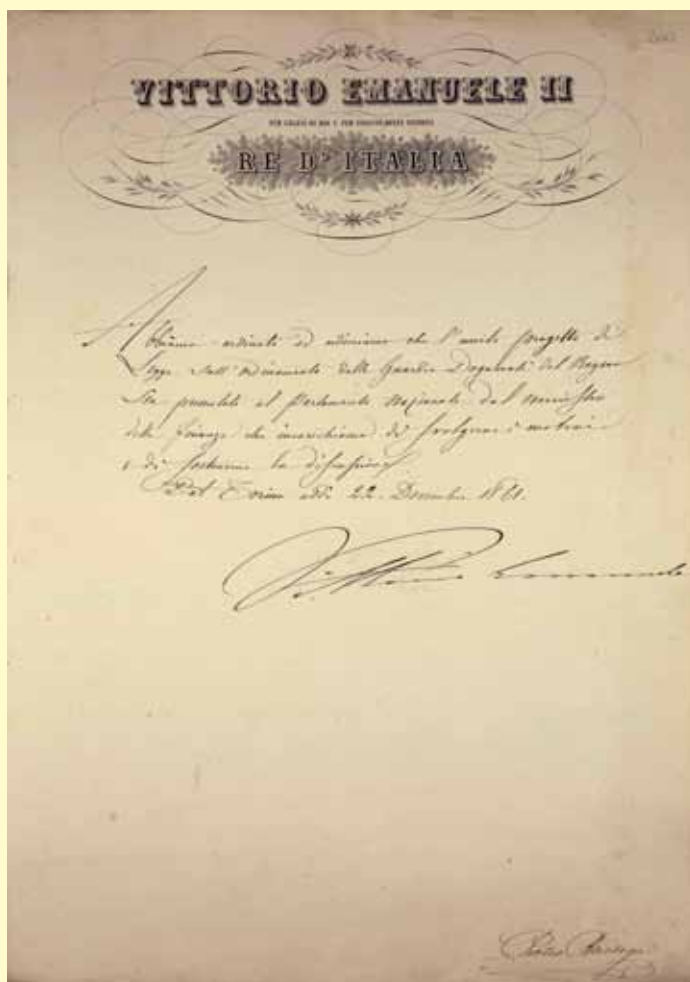 VITTORIO EMANUELE II
PER GRAZIA DI DIO E PER VOLONTÀ DELLA NAZIONE
RE D'ITALIA
Abbiamo ordinato ed ordiniamo che l'unito progetto di
Legge sull'ordinamento delle Guardie Doganali del Regno
sia presentato al Parlamento Nazionale dal ministro
delle finanze che incarichiamo di svolgerne i motivi
e di sostenerne la discussione
Dat Torino addì 22 Dicembre 1861.
Vittorio Emanuele
Pietro